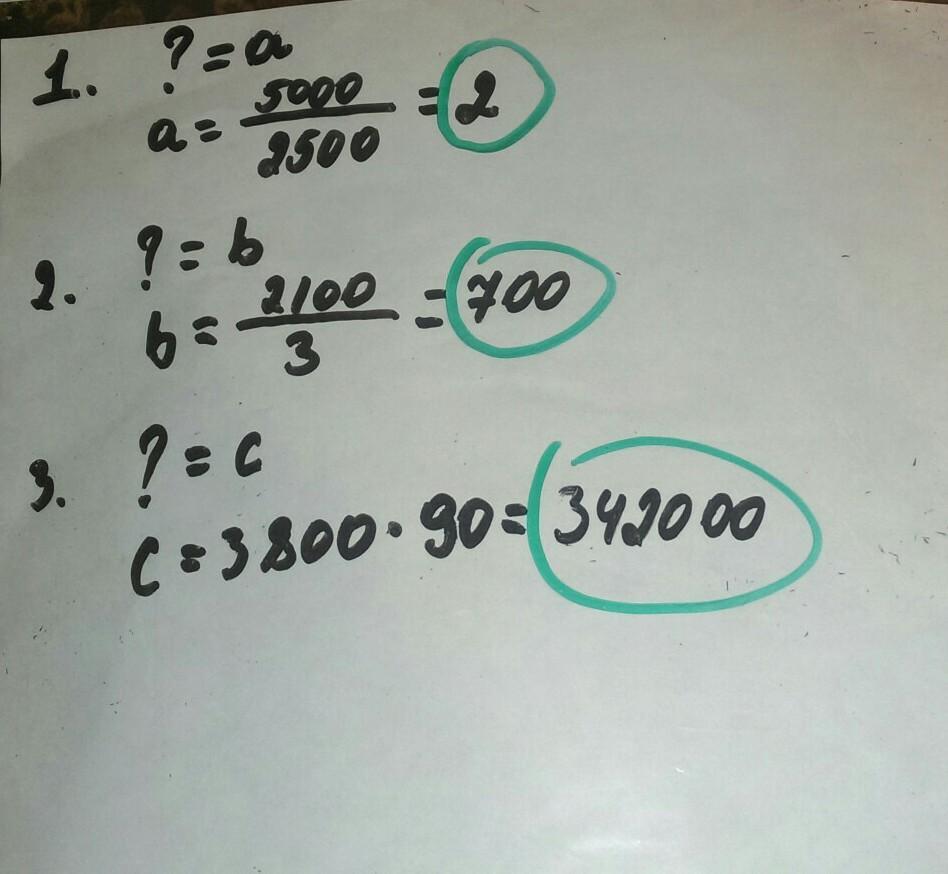 1. ? = a
a = 5000/2500 = 2
2. ? = b
b = 2100/3 = 700
3. ? = c
c = 3800 · 90 = 342000